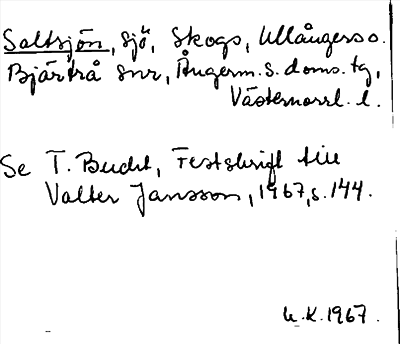 Saltsjön, sjö, Skogs, Ullångers o.
Bjärtrå snr, Ångerm. s. doms. tg,
Västernorrl. l.
Se T. Bucht, Festskrift till
Valter Jansson, 1967, s. 144.
U.K. 1967.